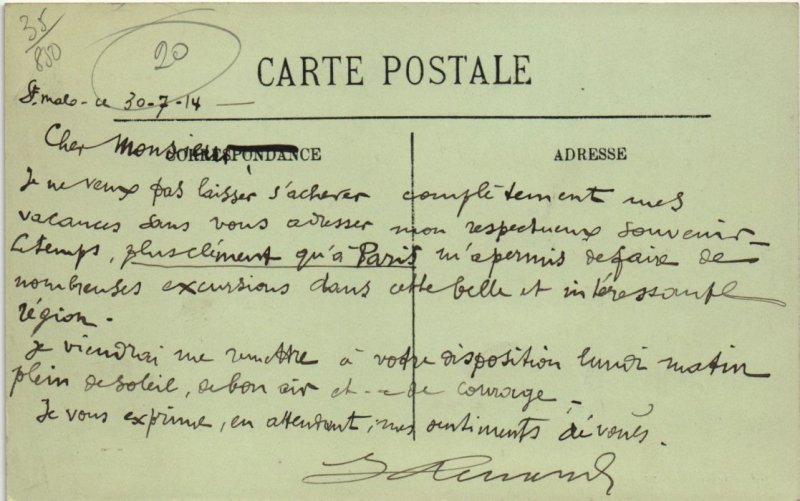 35/850
20
CARTE POSTALE
St. malo - ce 30-7-14
Cher Monsieur
CORRESPONDANCE
ADRESSE
Je ne veux pas laisser s'achever complètement mes
vacances sans vous adresser mon respectueux souvenir_
Le temps, plus clément qu'à Paris m'a permis de faire de
nombreuses excursions dans cette belle et intéressante
région.
Je viendrai me remettre à votre disposition lundi matin
plein de soleil, de bon air et - de courage.
Je vous exprime, en attendant, mes sentiments dévoués.